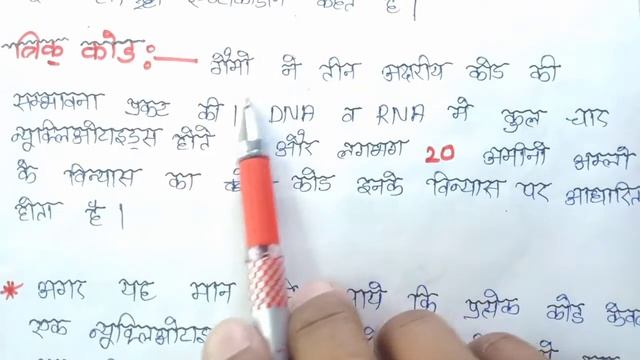 कहते है |
त्रिक कोड:— गैमो ने तीन अक्षरीय कोड की
सम्भावना प्रकट की | DNA व RNA मे कुल चार
न्यूक्लिओटाइड्स होते और लगभग 20 अमीनो अम्लो
के विन्यास का कोड इनके विन्यास पर आधारित
होता है |
* अगर यह मान जाये कि प्रत्येक कोड केवल
एक न्यूक्लिओटाइड